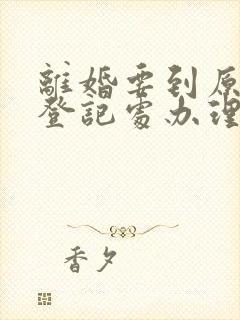 離婚要到原
登記處办理
香夕